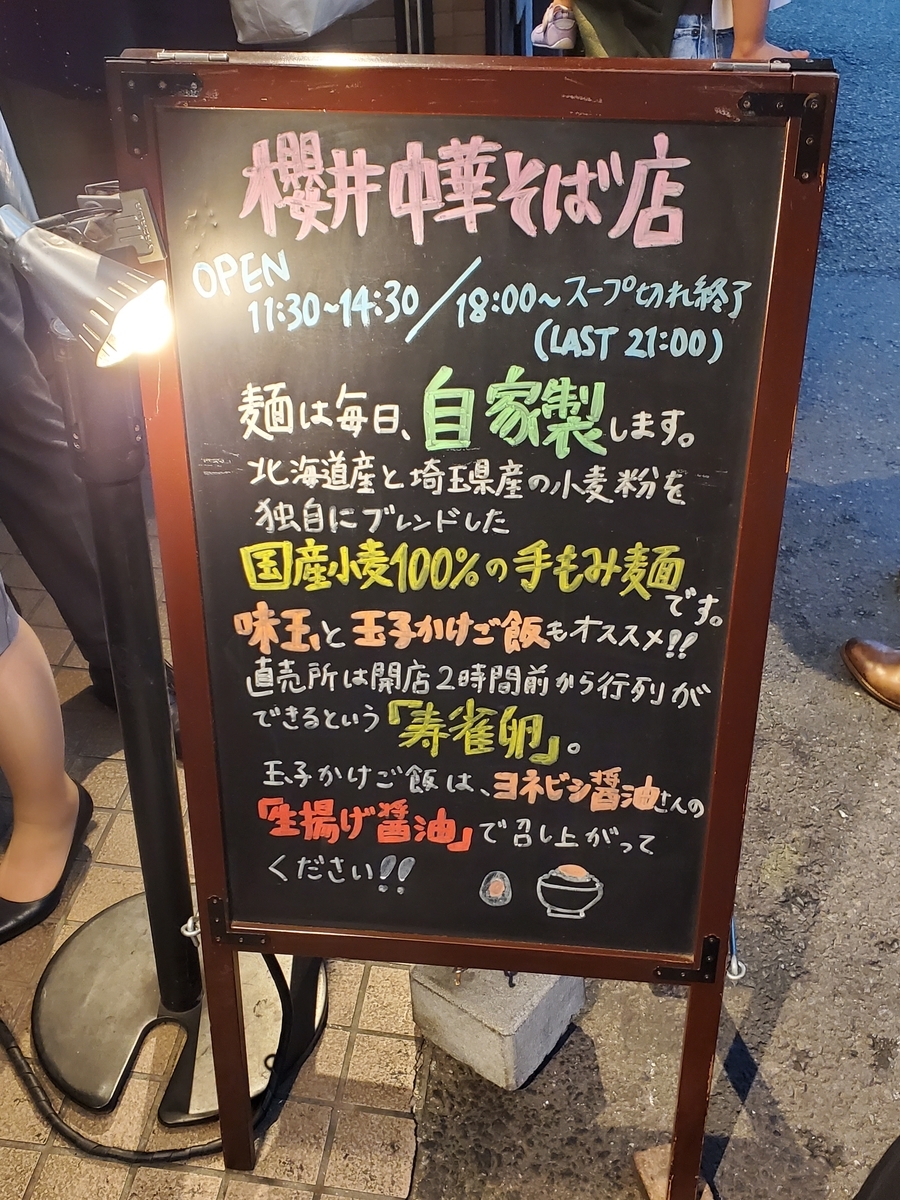 櫻井中華そば店
OPEN
11:30~14:30/18:00~スープ切れ終了
(LAST 21:00)
麺は毎日、自家製します。
北海道産と埼玉県産の小麦粉を
独自にブレンドした
国産小麦100%の手もみ麺
です。
味玉と玉子かけご飯もオススメ!!
直売所は開店2時間前から行列が
できるという「寿雀卵」。
玉子かけご飯は、ヨネビシ醤油さんの
「生揚げ醤油」で召し上がって
ください!!